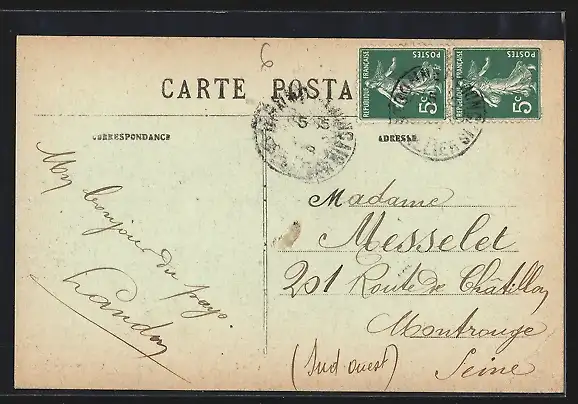 CARTE POSTA
RÉPUBLIQUE FRANÇAISE
POSTES
5c
RÉPUBLIQUE FRANÇAISE
POSTES
5c
CORRESPONDANCE
ADRESSE
Mon bonjour du pays.
Landon
Madame
Messelet
201 Route de Châtillon
Montrouge
(Sud-ouest) Seine